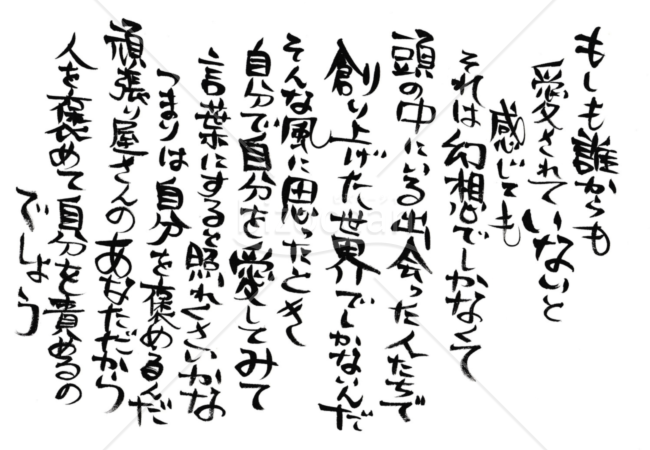 もしも誰からも
愛されていないと
感じても
それは幻想でしかなくて
頭の中にいる出会った人たちで
創り上げた世界でしかないんだ
そんな風に思ったとき
自分で自分を愛してみて
言葉にすると照れくさいかな
つまりは自分を褒めるんだ
頑張り屋さんのあなただから
人を褒めて自分を責めるの
でしょう